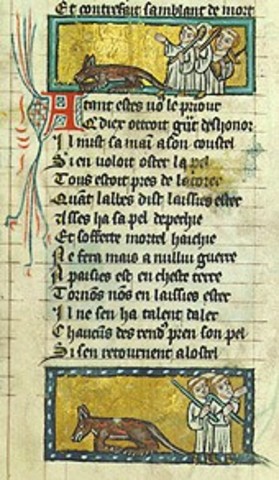 Et contrefait samblant de mort
Atant estes uo le priour
Et diex otroit gñt deshonor
Il mist sa mai a son coustel
Si en uoloit oster la pel
Tous estoit pres de
Quant labbes dist laissies ester
Asses ha sa pel depechie
Et sofferte mortel haichie
Ne fera mais a nullui guerre
Apaisies est en cheste terre
Tornōs nōs en laissies ester
Il ne sen ha talent daler
Chaucūs des rend' pren son pel
Si sen retournent a lostel